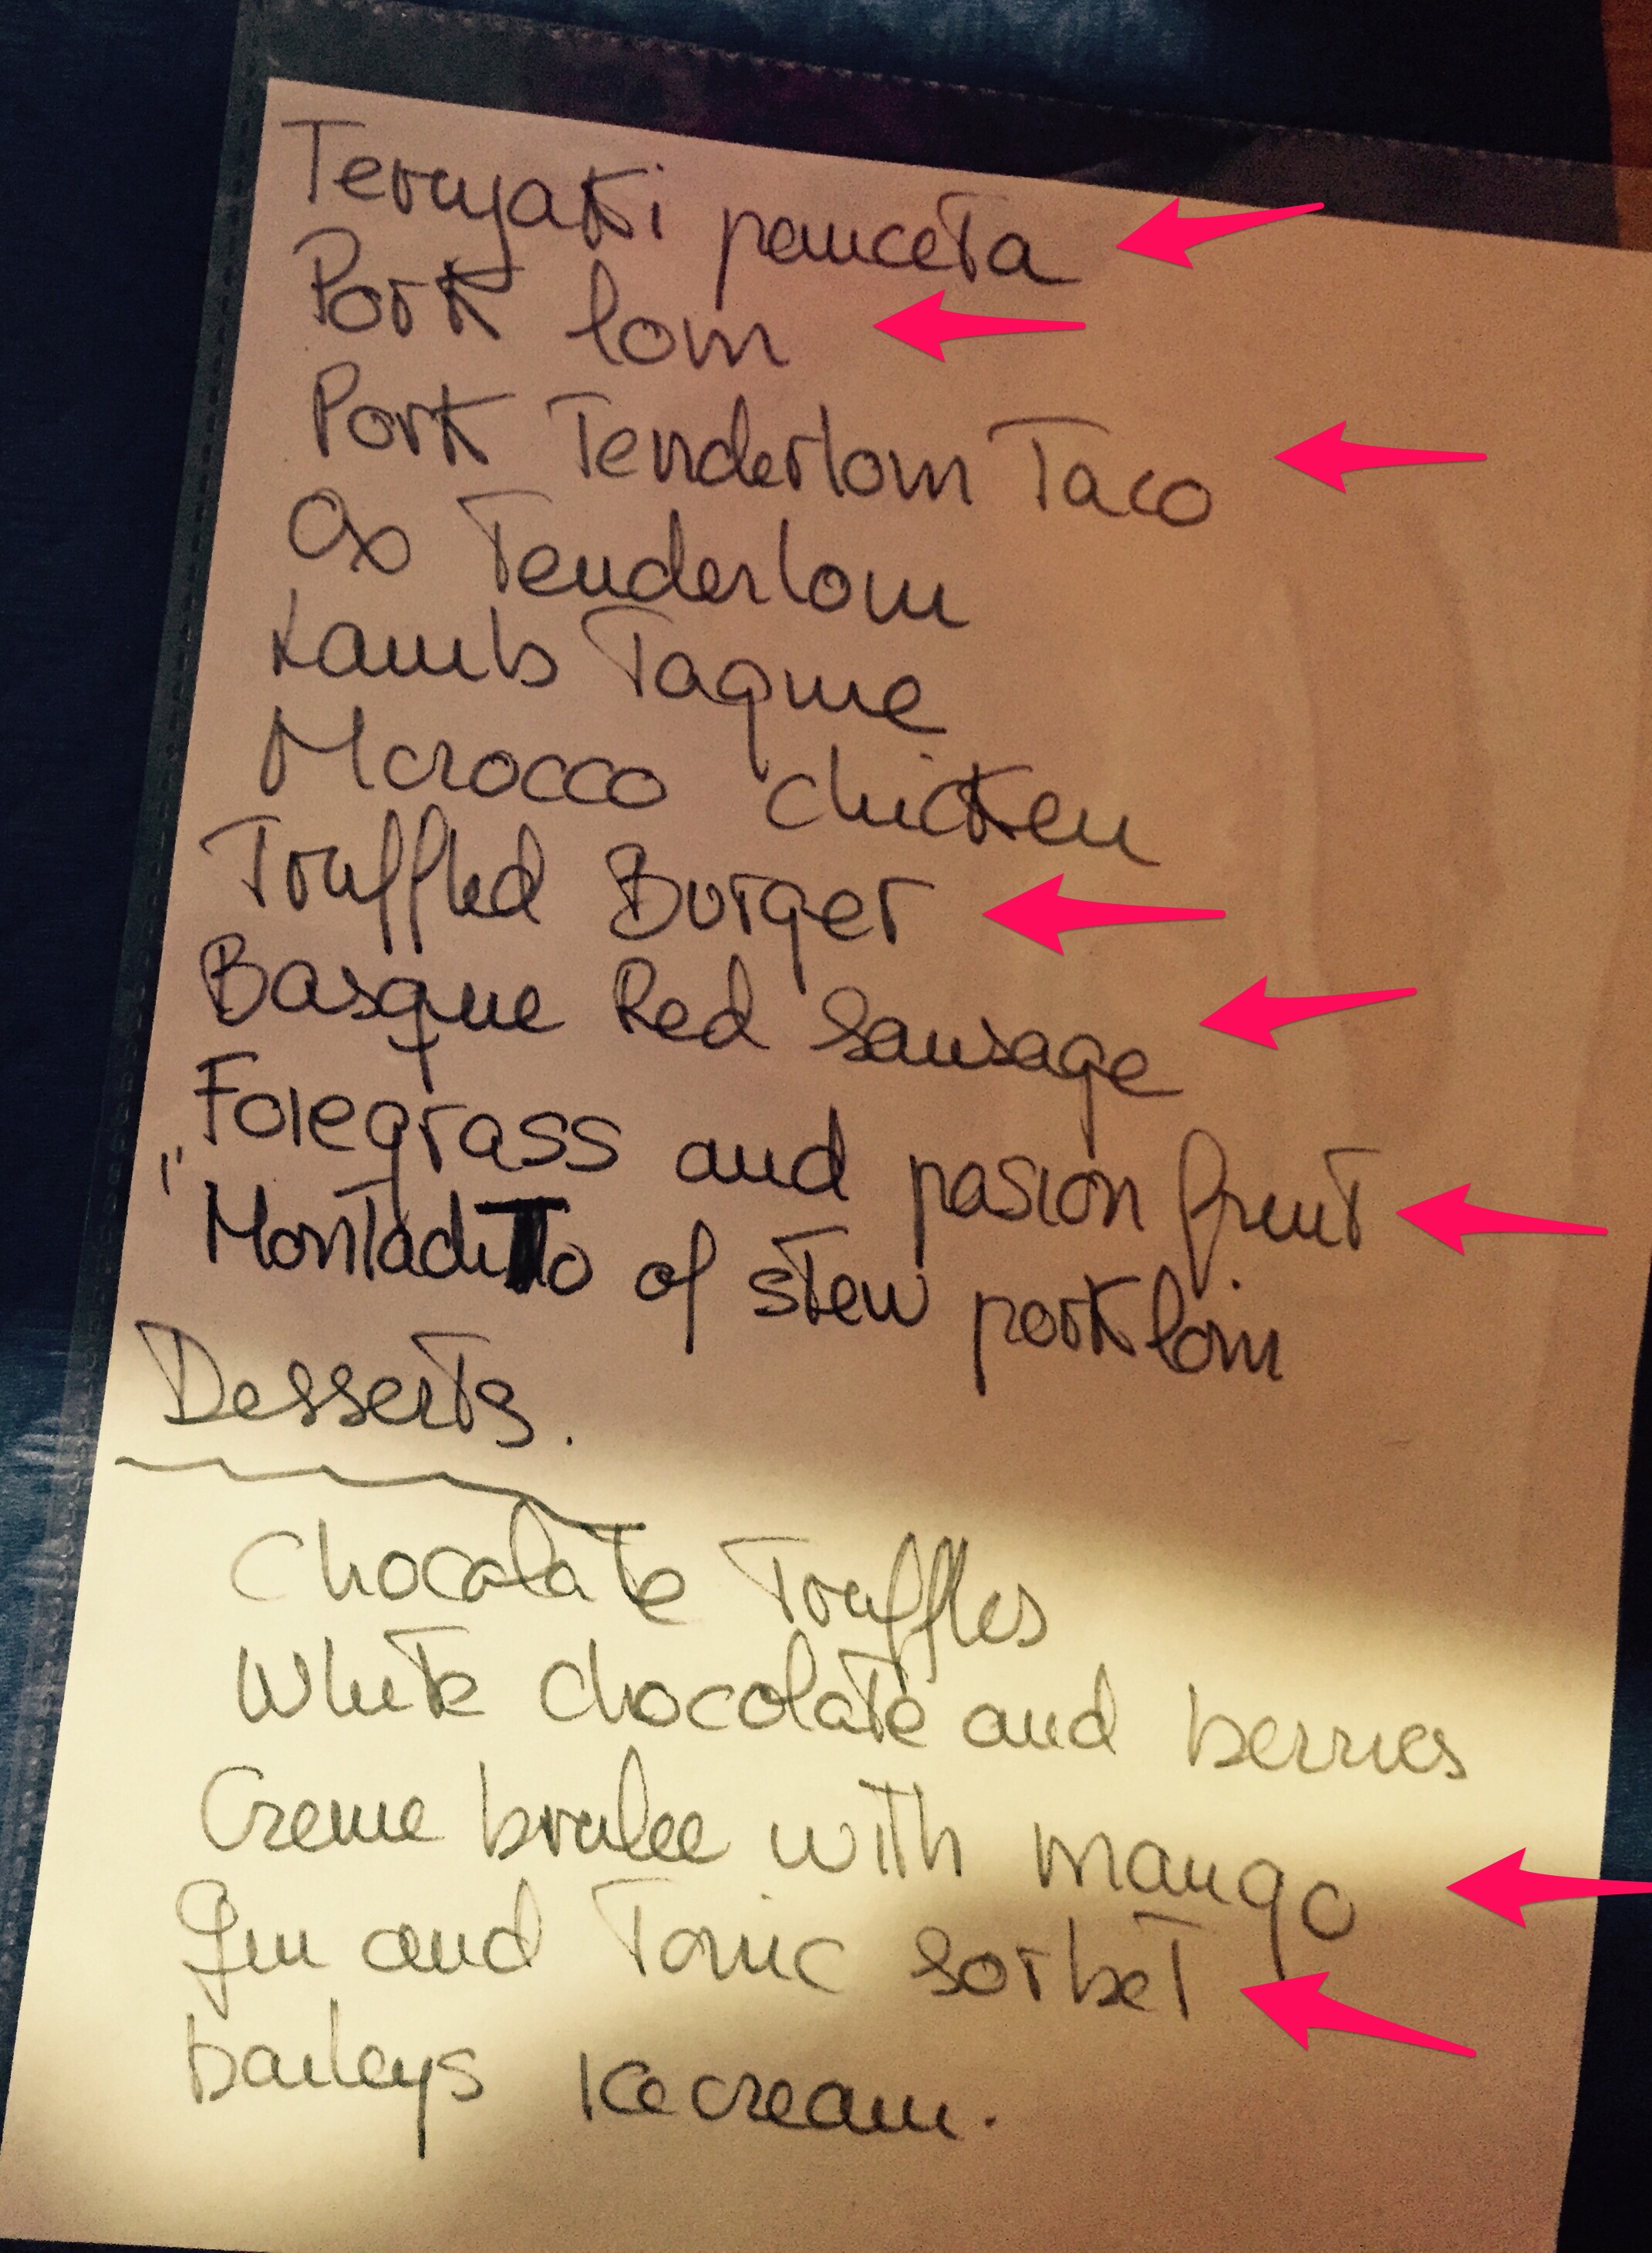 Teriyaki panceta
Pork loin
Pork Tenderloin Taco
Ox Tenderloin
Lamb Tagine
Morocco chicken
Truffled Burger
Basque Red Sausage
Foiegrass and pasion fruit
"Montadito of stew pork loin
Desserts.
Chocolate Truffles
White chocolate and berries
Creme brulee with mango
Gin and Tonic sorbet
baileys icecream.